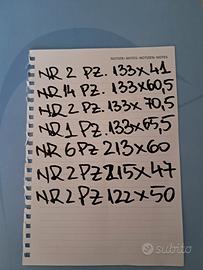 NOTIZEN NOTES NOTIZEN NOTES
NR 2 PZ. 133x41
NR 14 PZ. 133x60,5
NR 2 PZ. 133x70,5
NR 1 PZ. 133x65,5
NR 6 PZ 213x60
NR 2 PZ 215x47
NR 2 PZ 122x50
subito